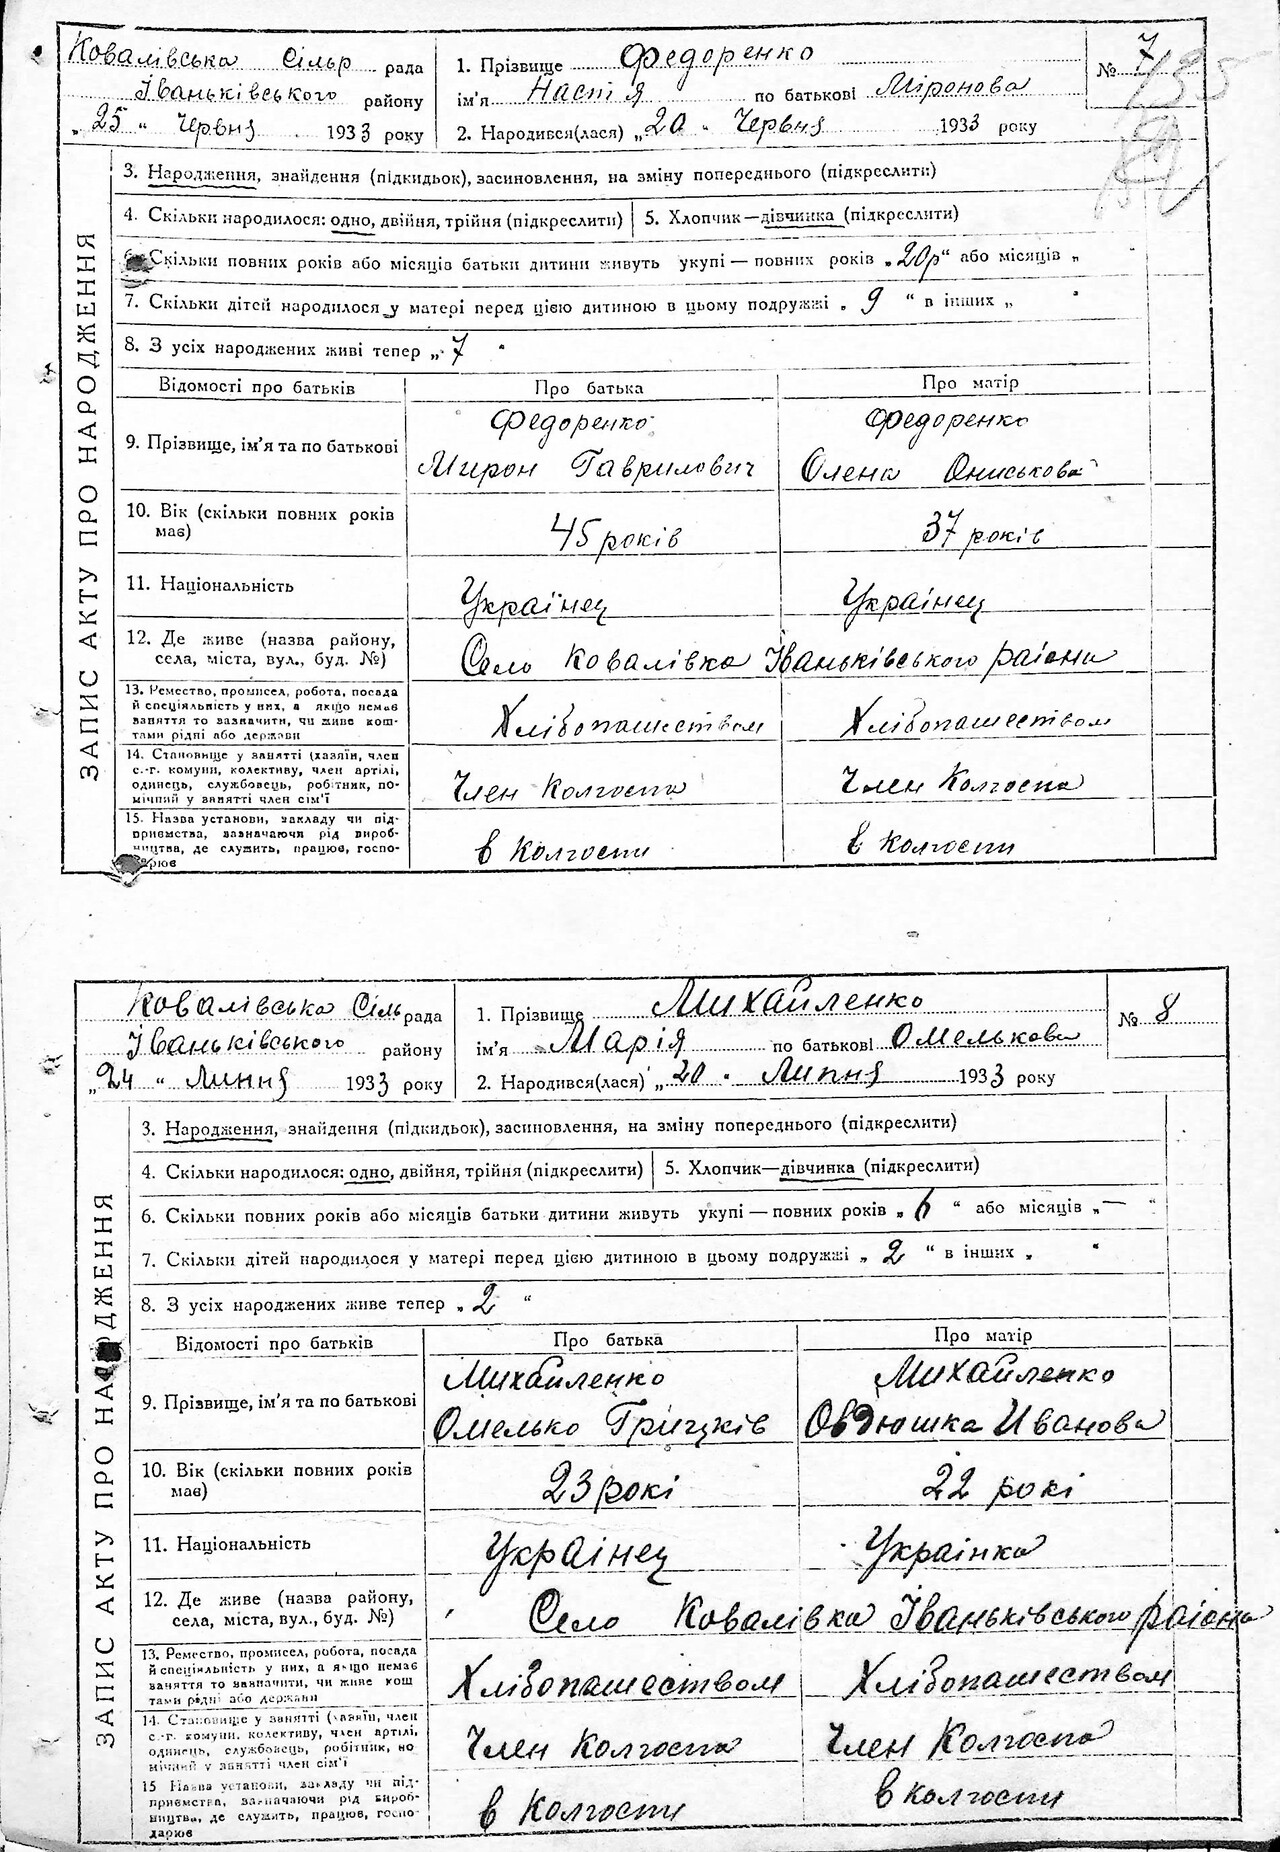 Ковалівська Сільр рада
Іваньківського району
„25“ Червня 1933 року
1. Прізвище Федоренко
ім'я Настя по батькові Міронова
2. Народився(лася) „20“ Червня 1933 року
№ 7
ЗАПИС АКТУ ПРО НАРОДЖЕННЯ
3. Народження, знайдення (підкидьок), засиновлення, на зміну попереднього (підкреслити)
4. Скільки народилося: одно, двійня, трійня (підкреслити) 5. Хлопчик—дівчинка (підкреслити)
Скільки повних років або місяців батьки дитини живуть укупі — повних років „20р“ або місяців „
7. Скільки дітей народилося у матері перед цією дитиною в цьому подружжі „9“ в інших „ “
8. З усіх народжених живі тепер „7“
Відомості про батьків Про батька Про матір
9. Прізвище, ім'я та по батькові
Федоренко Мирон Гаврилович
Федоренко Олена Ониськова
10. Вік (скільки повних років має)
45 років 37 років
11. Національність Українец Українец
12. Де живе (назва району, села, міста, вул., буд. №)
Село Ковалівка Іваньківського раіона
13. Ремество, промисел, робота, посада
й спеціяльність у них, а якщо немає
заняття то зазначити, чи живе кош-
тами рідні або держави
Хлібопашеством Хлібопашеством
14. Становище у занятті (хазяїн, член
с.-г. комуни, колективу, член артілі,
одинець, службовець, робітник, по-
мічний у занятті член сім'ї
Член Колгоспа Член Колгоспа
15. Назва установи, закладу чи під-
приємства, зазначаючи рід вироб-
ництва, де служить, працює, госпо-
дарює
в Колгоспи в Колгоспи
Ковалівська Сіль рада
Іваньківського району
„24“ Липня 1933 року
1. Прізвище Михайленко
ім'я Марія по батькові Омелькова
2. Народився(лася) „20“ Липня 1933 року
№ 8
ЗАПИС АКТУ ПРО НАРОДЖЕННЯ
3. Народження, знайдення (підкидьок), засиновлення, на зміну попереднього (підкреслити)
4. Скільки народилося: одно, двійня, трійня (підкреслити) 5. Хлопчик—дівчинка (підкреслити)
6. Скільки повних років або місяців батьки дитини живуть укупі — повних років „6“ або місяців „—“
7. Скільки дітей народилося у матері перед цією дитиною в цьому подружжі „2“ в інших „ “
8. З усіх народжених живе тепер „2“
Відомості про батьків Про батька Про матір
9. Прізвище, ім'я та по батькові
Михайленко Омелько Грицків
Михайленко Овдюшка Иванова
10. Вік (скільки повних років має)
23 рокі 22 рокі
11. Національність Украінец Украінка
12. Де живе (назва району, села, міста, вул., буд. №)
Село Ковалівка Іваньківського раіона
13. Ремество, промисел, робота, посада
й спеціяльність у них, а якщо немає
заняття то зазначити, чи живе кош
тами рідні або держави
Хлібопашеством Хлібопашеством
14. Становище у занятті (хазяїн, член
с.-г. комуни, колективу, член артілі,
одинець, службовець, робітник, по
мічний у занятті член сім'ї
Член Колгоспа Член Колгоспа
15 Назва установи, закладу чи під-
приємства, зазначаючи рід вироб-
ництва, де служить, працює, госпо-
дарює
в Колгоспи в колгоспи